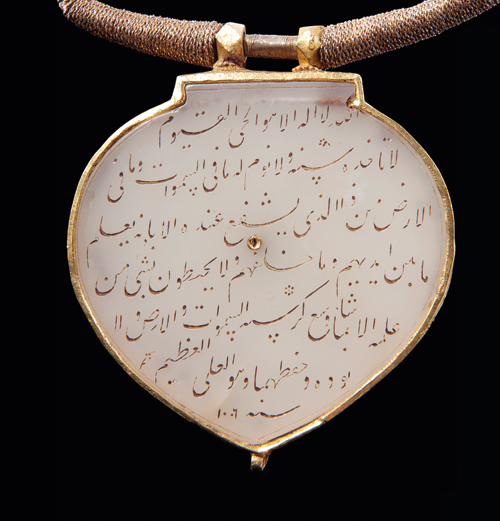 الله لا اله الا هو الحى القيوم
لا تاخذه سنه ولا نوم له ما فى السموات وما فى
الارض من ذا الذى يشفع عنده الا باذنه يعلم
ما بين ايديهم وما خلفهم ولا يحيطون بشى من
علمه الا بما شا وسع كرسيه السموات والارض ولا
يوده حفظهما وهو العلى العظيم
سنه ١٠٠٦